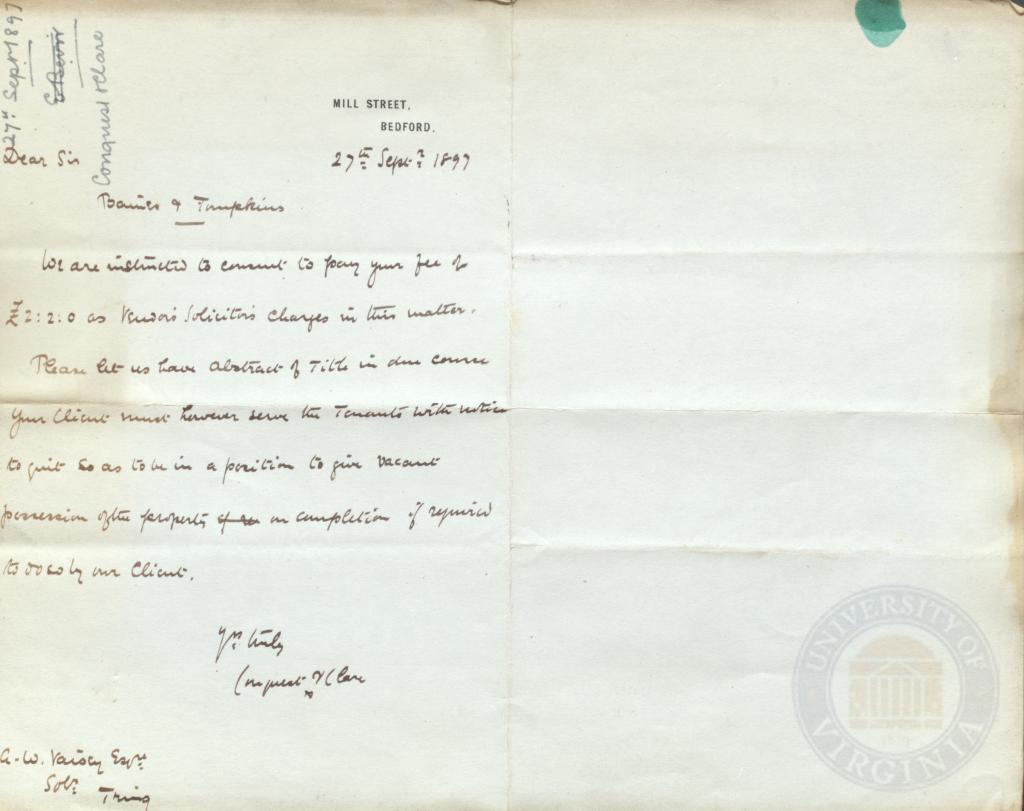 27th Septr 1897
Conquest & Clare
MILL STREET,
BEDFORD.
Dear Sir
27th Septr 1897
Baines & Tompkins
We are instructed to consent to pay your fee of
£2:2:0 as Vendor's Solicitor's charges in this matter.
Please let us have Abstract of Title in due course
Your Client must however serve the Tenants with notice
to quit so as to be in a position to give vacant
possession of the property on completion if required
to do so by our Client.
Yrs truly
Conquest & Clare
A. W. Vaisey Esqre
Solr
Tring
UNIVERSITY OF VIRGINIA
1819